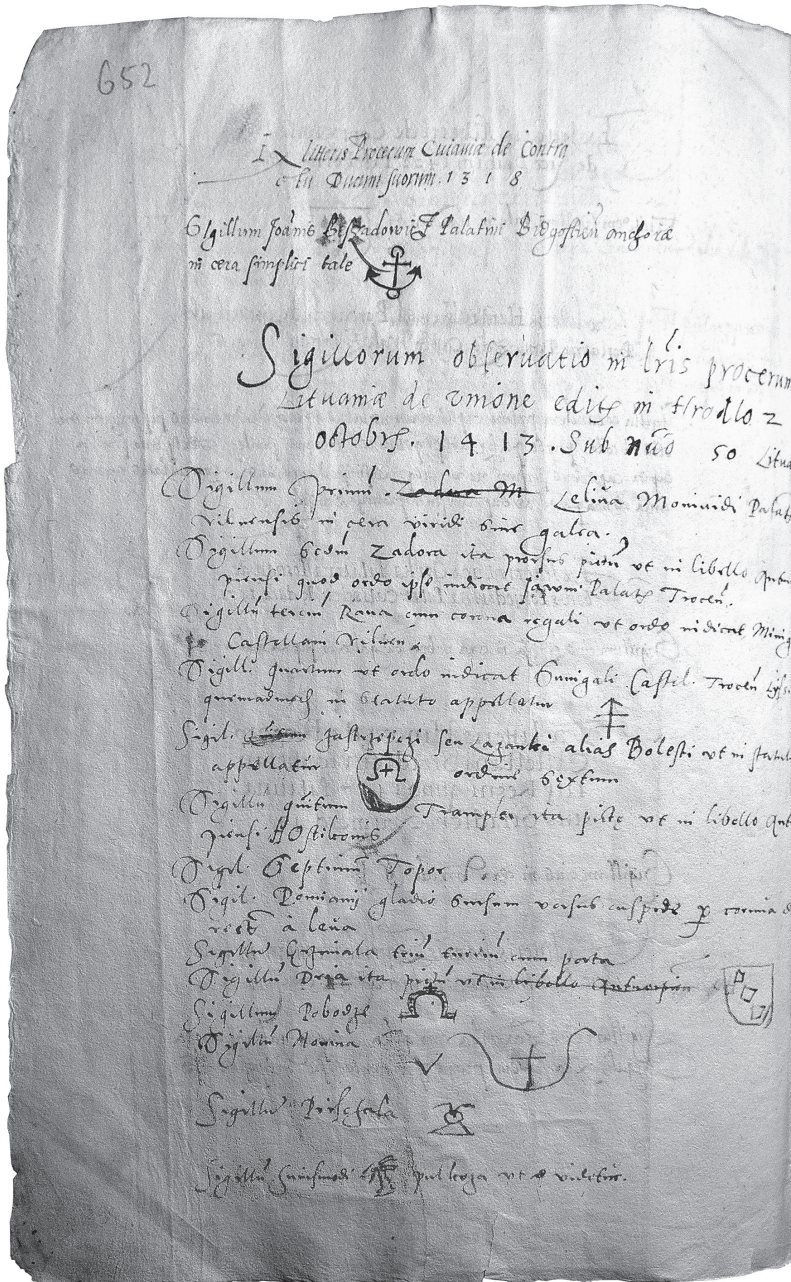 652
Ex litteris Procerum Cuiaviæ de Contra
ctu Ducum suorum. 1 3 1 8
Sigillum Joānis Palatini Bidgostien̄ anchoræ
in cera simplici tale
Sigillorum observatio in lr̄is procerum
Lituaniæ de vnione edit in Hrodlo 2
octobr. 1 4 1 3. Sub nūo 50 Litua
Sigillum primū. Zadora M Leliva Moniuidi Palat
Vilnensis in cera viridi sine galea.
Sigillum Scdm̄ Zadora ita prorsus pictū vt in libello Antu
piensi quod ordo ipse indicat Palat Trocen̄.
Sigillū terciū Rava cum corona regali vt ordo indicat Minig
Castellani Vilnen
Sigill. quartum vt ordo indicat Sunigali Castel. Trocen̄
quemadmod in Statuto appellatur
Sigil. seu Lazanki alias Bolesti vt in statu
appellatur ordine Sextum
Sigillū quintum Tramper ita picte vt in libello Ant
piensi Ostikonis
Sigil. Septimū Topor
Sigil. Pomianij gladio sursum versus cuspide p cornua
rect à leua
Sigillū Grzimala triū turriū cum porta
Sigillū Dria ita pictū vt in libello Antverpien
Sigillum Pobodze
Sigillū Novina
Sigillū
Sigillū huiusmodi pulkoza vt videtur.